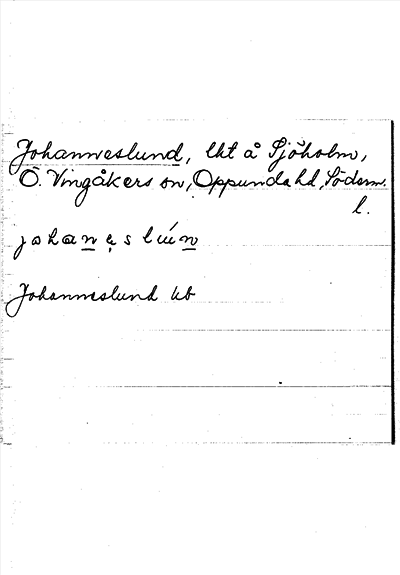 Johanneslund, lht å Sjöholm,
Ö. Vingåkers sn, Oppunda hd, Söderm.
l.
johanes lún
Johanneslund kb